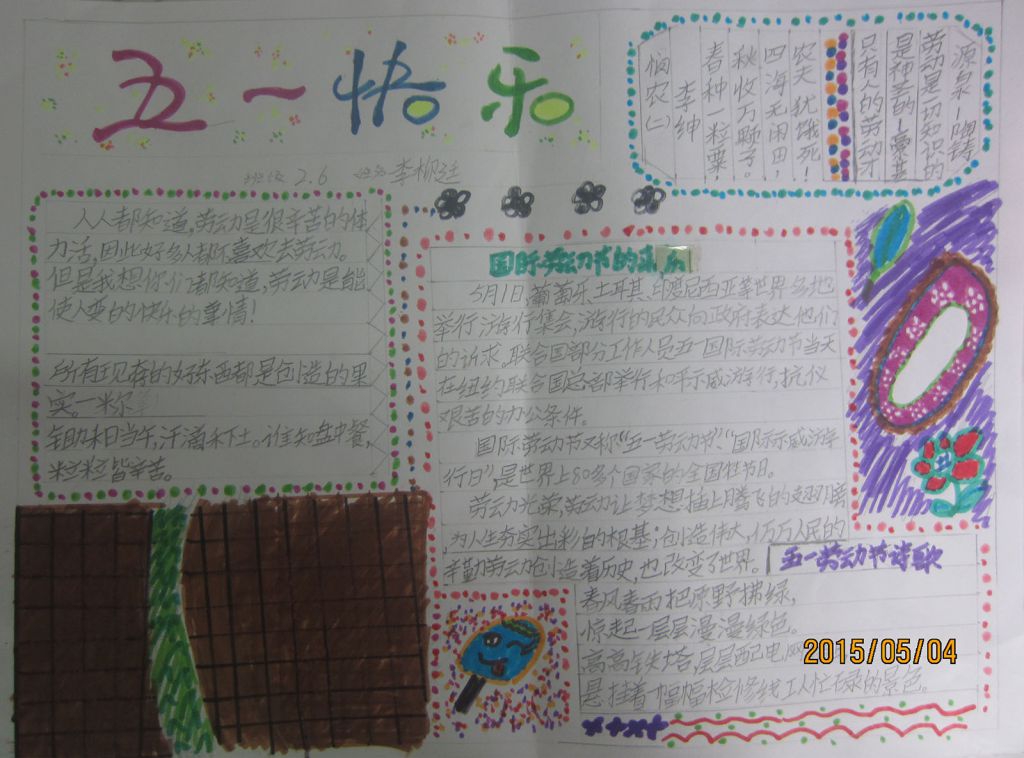 五一快乐
班级 2.6 姓名 李柳廷
源泉—陶铸
劳动是一切知识的
是神圣的
只有人的劳动才
农夫犹饿死!
四海无闲田,
秋收万颗子。
春种一粒粟
李绅
悯农(二)
人人都知道,劳动是很辛苦的体
力活,因此好多人都不喜欢去劳动。
但是我想你们都知道,劳动是能
使人变的快乐的事情!
所有现存的好东西都是创造的果
实。—米尔
锄禾日当午,汗滴禾下土。谁知盘中餐,
粒粒皆辛苦。
国际劳动节的来历
5月1日,葡萄牙、土耳其、印度尼西亚等世界各地
举行游行集会,游行的民众向政府表达他们
的诉求。联合国部分工作人员五一国际劳动节当天
在纽约联合国总部举行和平示威游行,抗仪
艰苦的办公条件。
国际劳动节又称“五一劳动节”“国际示威游
行日”,是世界上80多个国家的全国性节日。
劳动光荣,劳动让梦想插上腾飞的翅膀
,为人生夯实出彩的根基;创造伟大,亿万人民的
辛勤劳动创造着历史,也改变了世界。
五一劳动节诗歌
春风春雨把原野拂绿,
惊起一层层漫漫绿色。
高高铁塔,层层配电,
悬挂着一幅幅检修线工人忙碌的景色。
2015/05/04